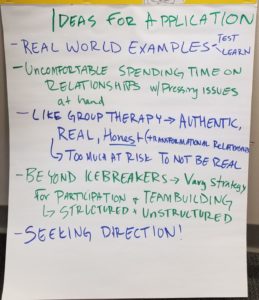 IDEAS FOR APPLICATION
- REAL WORLD EXAMPLES < TEST
LEARN
- UNCOMFORTABLE SPENDING TIME ON
RELATIONSHIPS w/ Pressing issues
at hand
- LIKE GROUP THERAPY → AUTHENTIC,
REAL, Honest + (TRANSFORMATIONAL RELATIONSHIPS
↳ TOO MUCH AT RISK TO NOT BE REAL
- BEYOND ICEBREAKERS → Vary Strategy
For PARTICIPATION + TEAMBUILDING
↳ STRUCTURED + UNSTRUCTURED
- SEEKING DIRECTION!